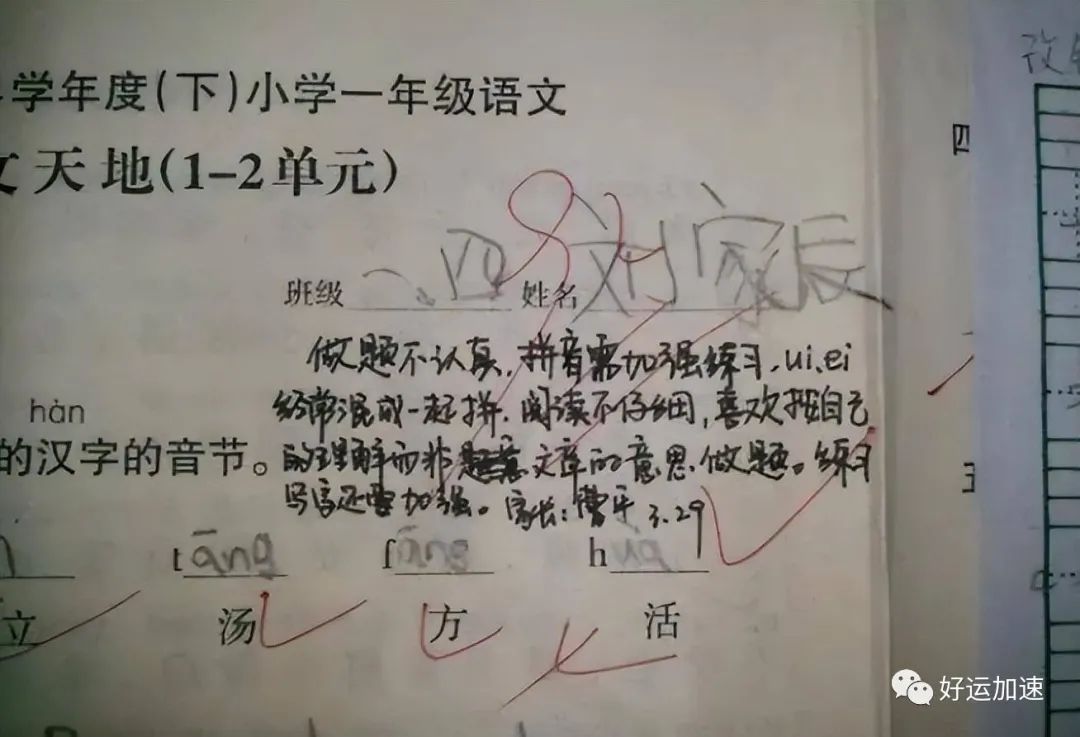 学年度(下)小学一年级语文
天地(1-2单元)
班级 一、四 姓名 刘家辰
做题不认真，拼音需加强练习，ui、ei
经常混或一起拼，阅读不仔细，喜欢按自己
hàn
的汉字的音节。
的理解而非文章的意思做题。练习
写字还需加强。家长：曹平 3.29
tāng fāng huó
立 汤 方 活
四
五
好运加速